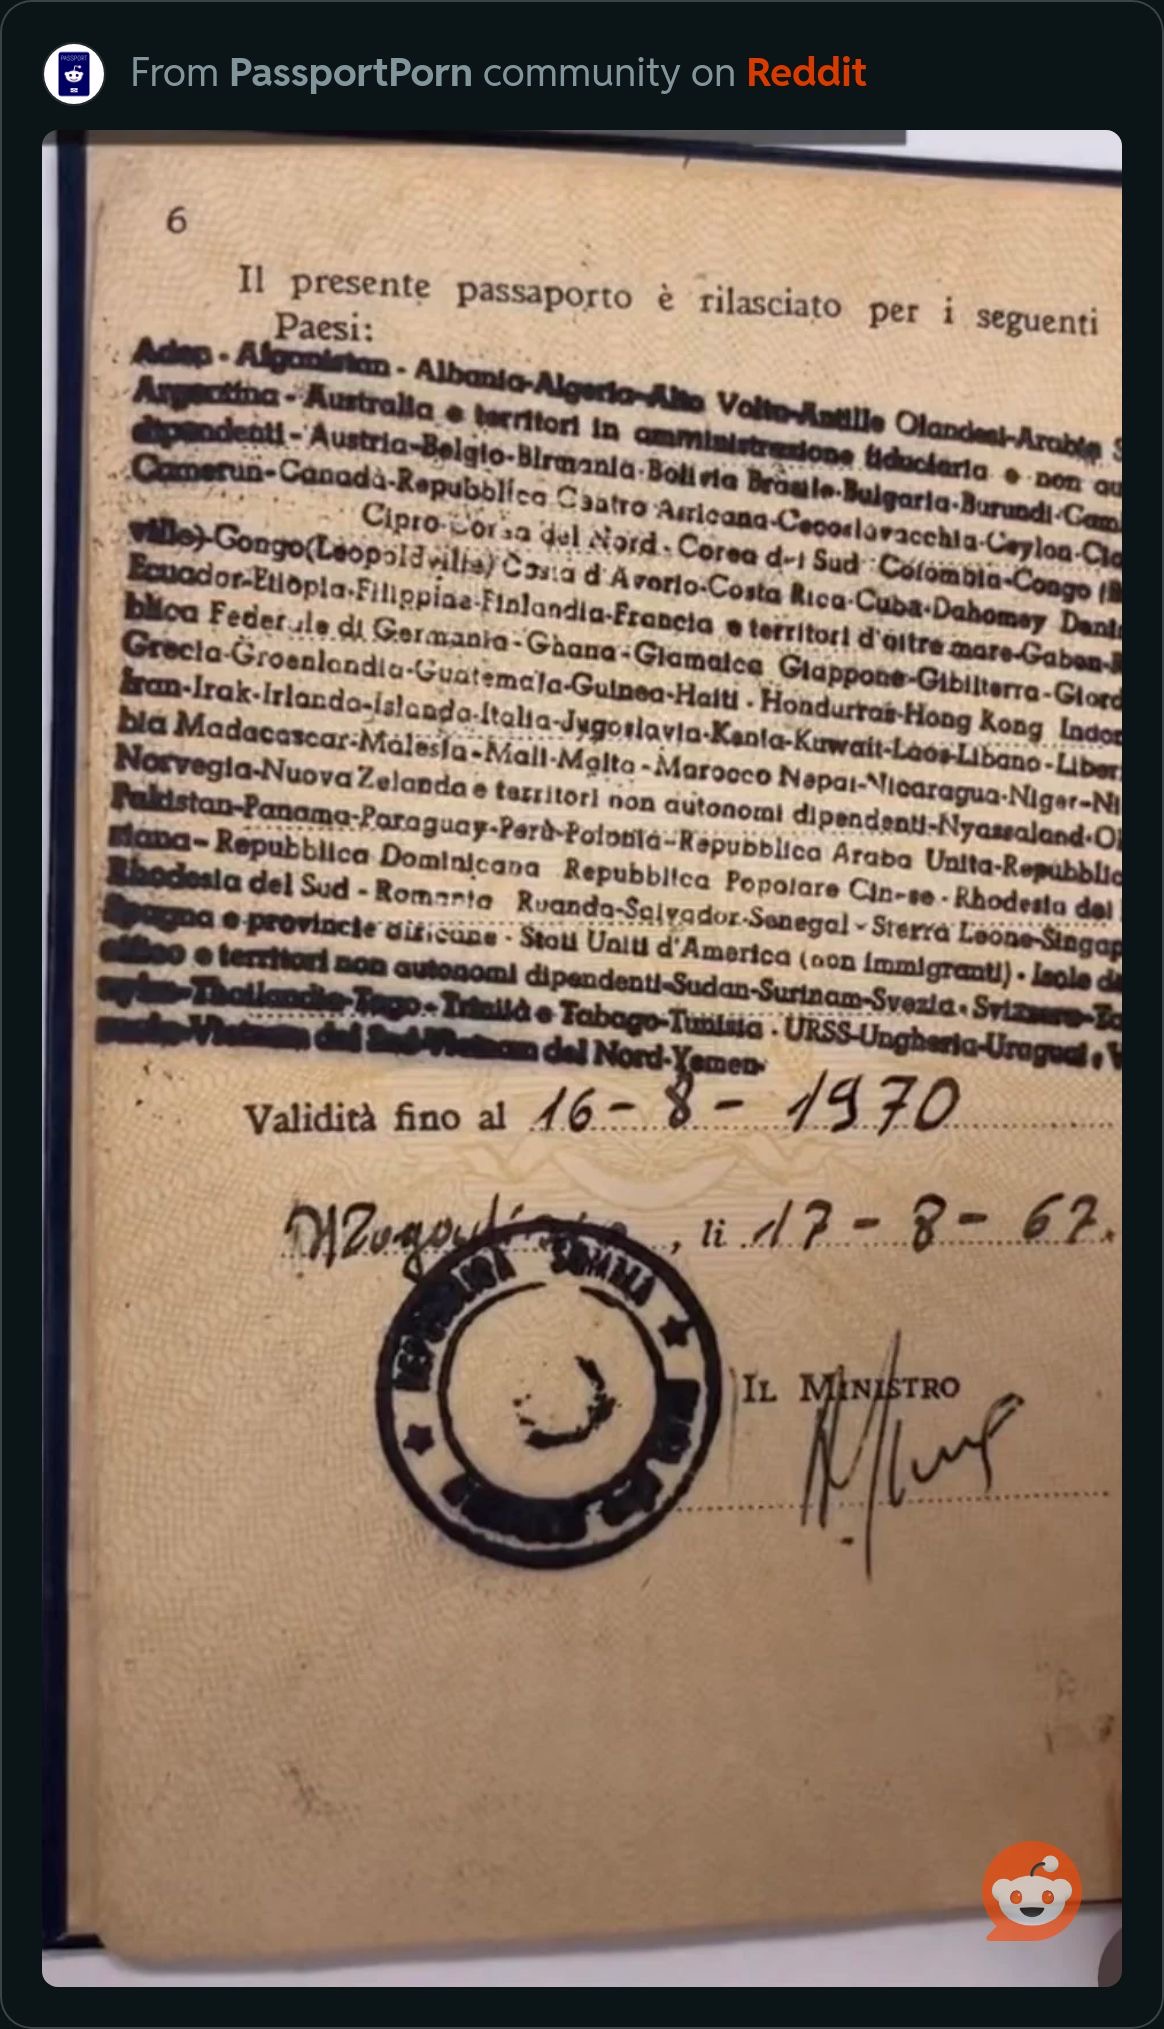 From PassportPorn community on Reddit
PASSPORT
6
Il presente passaporto è rilasciato per i seguenti
Paesi:
Aden - Afganistan - Albania-Algeria-Alto Volta-Antille Olandesi-Arabia S
Argentina - Australia e territori in amministrazione fiduciaria e non au
dipendenti - Austria-Belgio-Birmania-Bolivia Brasile-Bulgaria-Burundi-Cam
Camerun-Canadà-Repubblica Centro Africana-Cecoslovacchia-Ceylon-
Cipro-Corea del Nord - Corea del Sud Colombia-Congo
ville)-Congo(Leopoldville) Costa d'Avorio-Costa Rica-Cuba-Dahomey
Ecuador-Etiopia-Filippine-Finlandia-Francia e territori d'oltre mare-Gabon-
blica Federale di Germania-Ghana-Giamaica Giappone-Gibilterra-Giord
Grecia-Groenlandia-Guatemala-Guinea-Haiti - Hondurras-Hong Kong Indon
Iran-Irak-Irlanda-Islanda-Italia-Jugoslavia-Kenia-Kuwait-Laos-Libano-Liber
bia Madacascar-Malesia-Mali-Malta-Marocco Nepal-Nicaragua-Niger-Ni
Norvegia-Nuova Zelanda e territori non autonomi dipendenti-Nyassaland-
Pakistan-Panama-Paraguay-Perù-Polonia-Repubblica Araba Unita-Repubblic
riana-Repubblica Dominicana Repubblica Popolare Cinese-Rhodesia del
Rhodesia del Sud - Romania Ruanda-Salvador-Senegal-Sierra Leone-Singap
Spagna e provincie africane - Stati Uniti d'America (non immigranti) - Isole
cifico e territori non autonomi dipendenti-Sudan-Surinam-Svezia-Svizzera-
Thailandia-Togo-Trinità e Tabago-Tunisia - URSS-Ungheria-Uruguai
Vietnam del Sud-Vietnam del Nord-Yemen-
Validità fino al 16-8-1970
, li 17-8-67.
REPUBBLICA SOMALA
IL MINISTRO